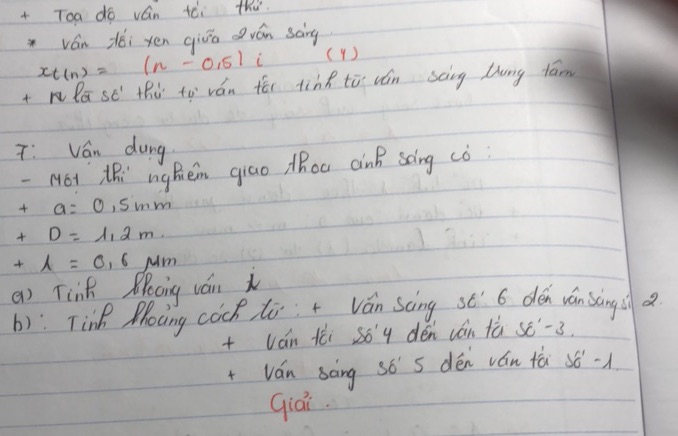 + Toạ độ vân tối thứ.
* vân tối xen giữa 2 vân sáng
xt(n) = (n - 0,5) i (4)
+ n là số thứ tự vân tối tính từ vân sáng trung tâm
7: Vận dụng.
- Một thí nghiệm giao thoa ánh sáng có :
+ a = 0,5mm
+ D = 1,2m.
+ λ = 0,6 μm
a) Tính khoảng vân i
b): Tính khoảng cách từ : + Vân sáng số 6 đến vân sáng số 2.
+ Vân tối số 4 đến vân tối số -3.
+ Vân sáng số 5 đến vân tối số -1.
Giải .